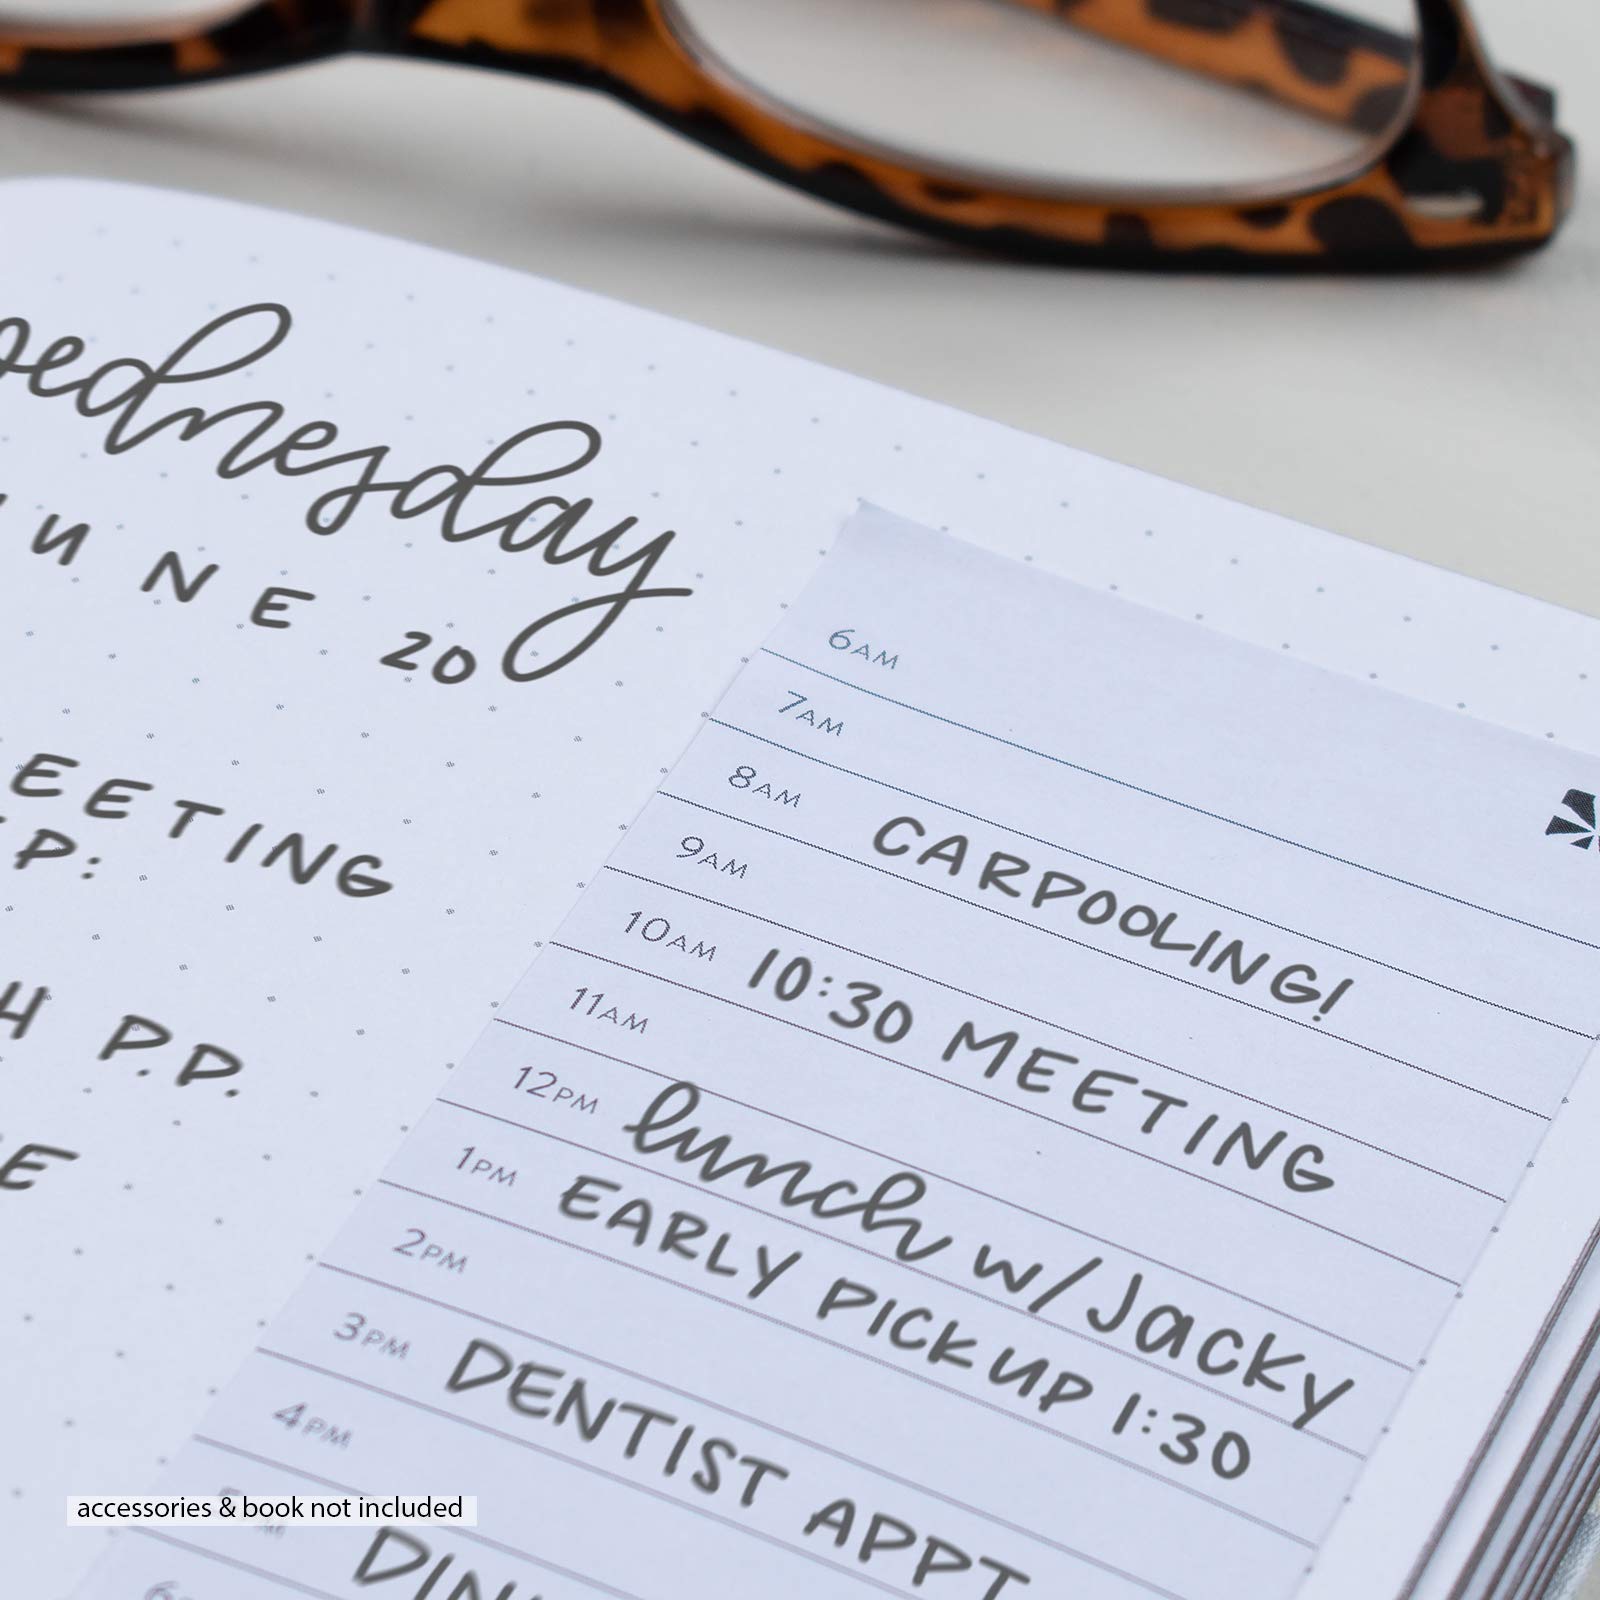 Wednesday
JUNE 20
MEETING
P:
H P.D.
E
6AM
7AM
8AM CARPOOLING!
9AM
10AM 10:30 MEETING
11AM
12PM lunch w/Jacky
1PM EARLY PICKUP 1:30
2PM
3PM DENTIST APPT
4PM
accessories & book not included